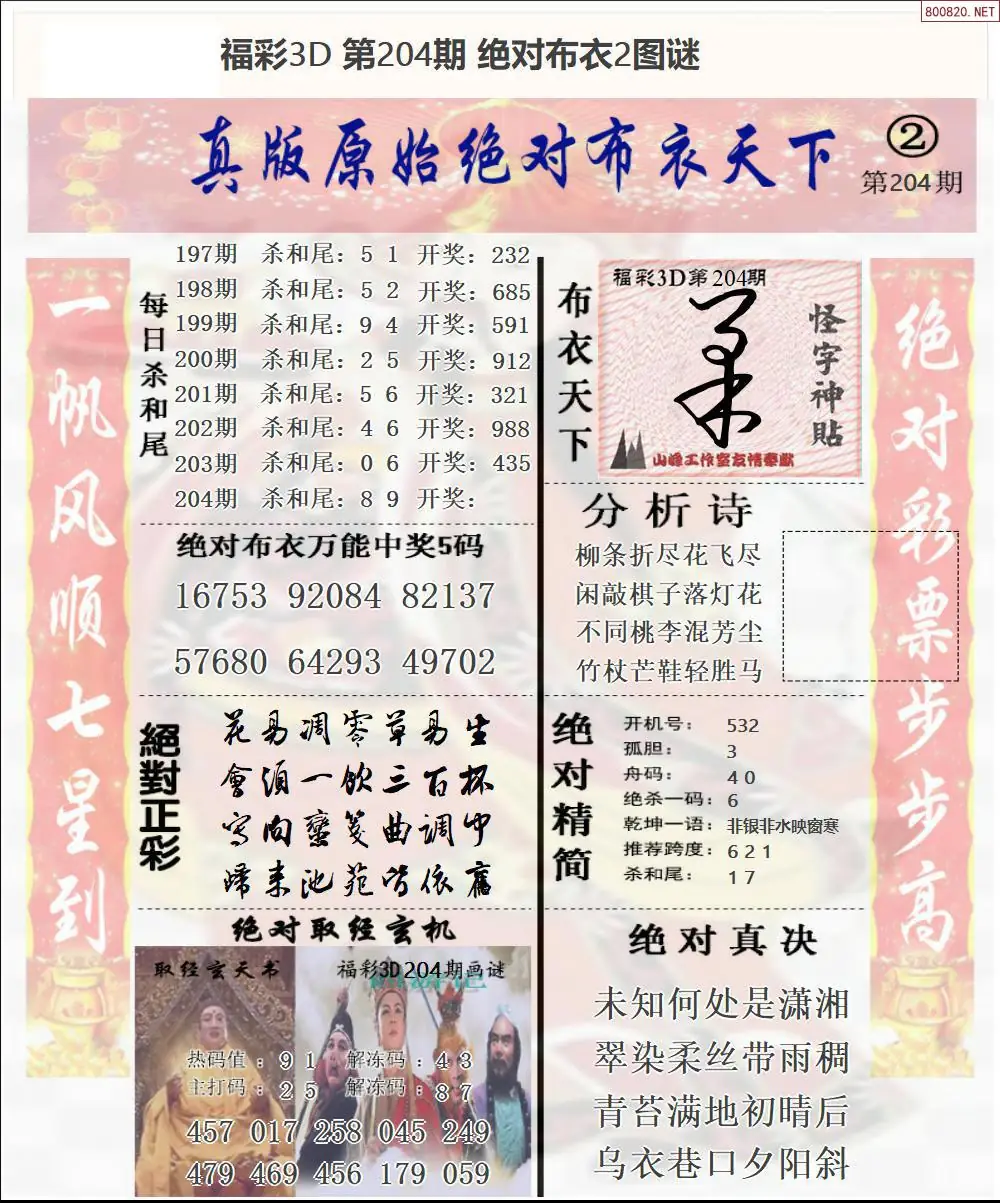 800820.NET
福彩3D 第204期 绝对布衣2图谜
真版原始绝对布衣天下
②
第204期
一帆风顺七星到
每日杀和尾
197期 杀和尾：5 1 开奖：232
198期 杀和尾：5 2 开奖：685
199期 杀和尾：9 4 开奖：591
200期 杀和尾：2 5 开奖：912
201期 杀和尾：5 6 开奖：321
202期 杀和尾：4 6 开奖：988
203期 杀和尾：0 6 开奖：435
204期 杀和尾：8 9 开奖：
绝对布衣万能中奖5码
16753 92084 82137
57680 64293 49702
絕對正彩
花易凋零草易生
會須一飲三百杯
寫向蠻箋曲调中
歸来池苑皆依舊
绝对取经玄机
取经玄天书
福彩3D204期画谜
热码值：9 1 解冻码：4 3
主打码：2 5 解冻码：8 7
457 017 258 045 249
479 469 456 179 059
布衣天下
福彩3D第204期
怪字神貼
山峰工作室友情奉献
分析诗
柳条折尽花飞尽
闲敲棋子落灯花
不同桃李混芳尘
竹杖芒鞋轻胜马
绝对精简
开机号： 532
孤胆： 3
舟码： 4 0
绝杀一码：6
乾坤一语：非银非水映窗寒
推荐跨度：6 2 1
杀和尾： 1 7
绝对真决
未知何处是潇湘
翠染柔丝带雨稠
青苔满地初晴后
乌衣巷口夕阳斜
绝对彩票步步高